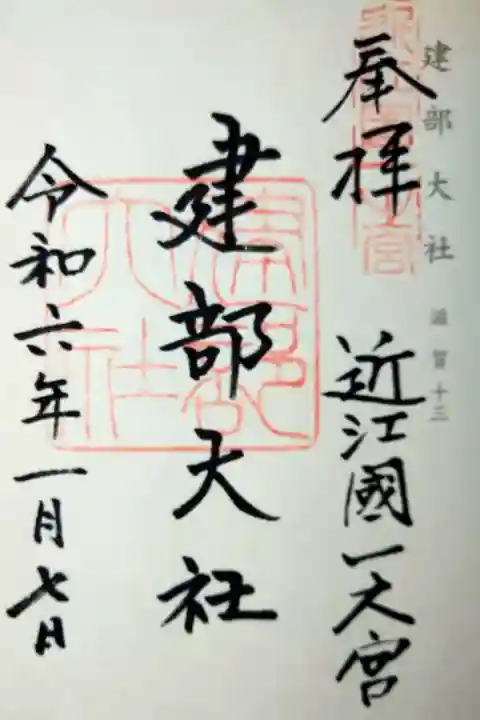 建部大社 滋賀十三
奉拝 近江國一之宮
建部大社
令和六年一月七日
建部大社